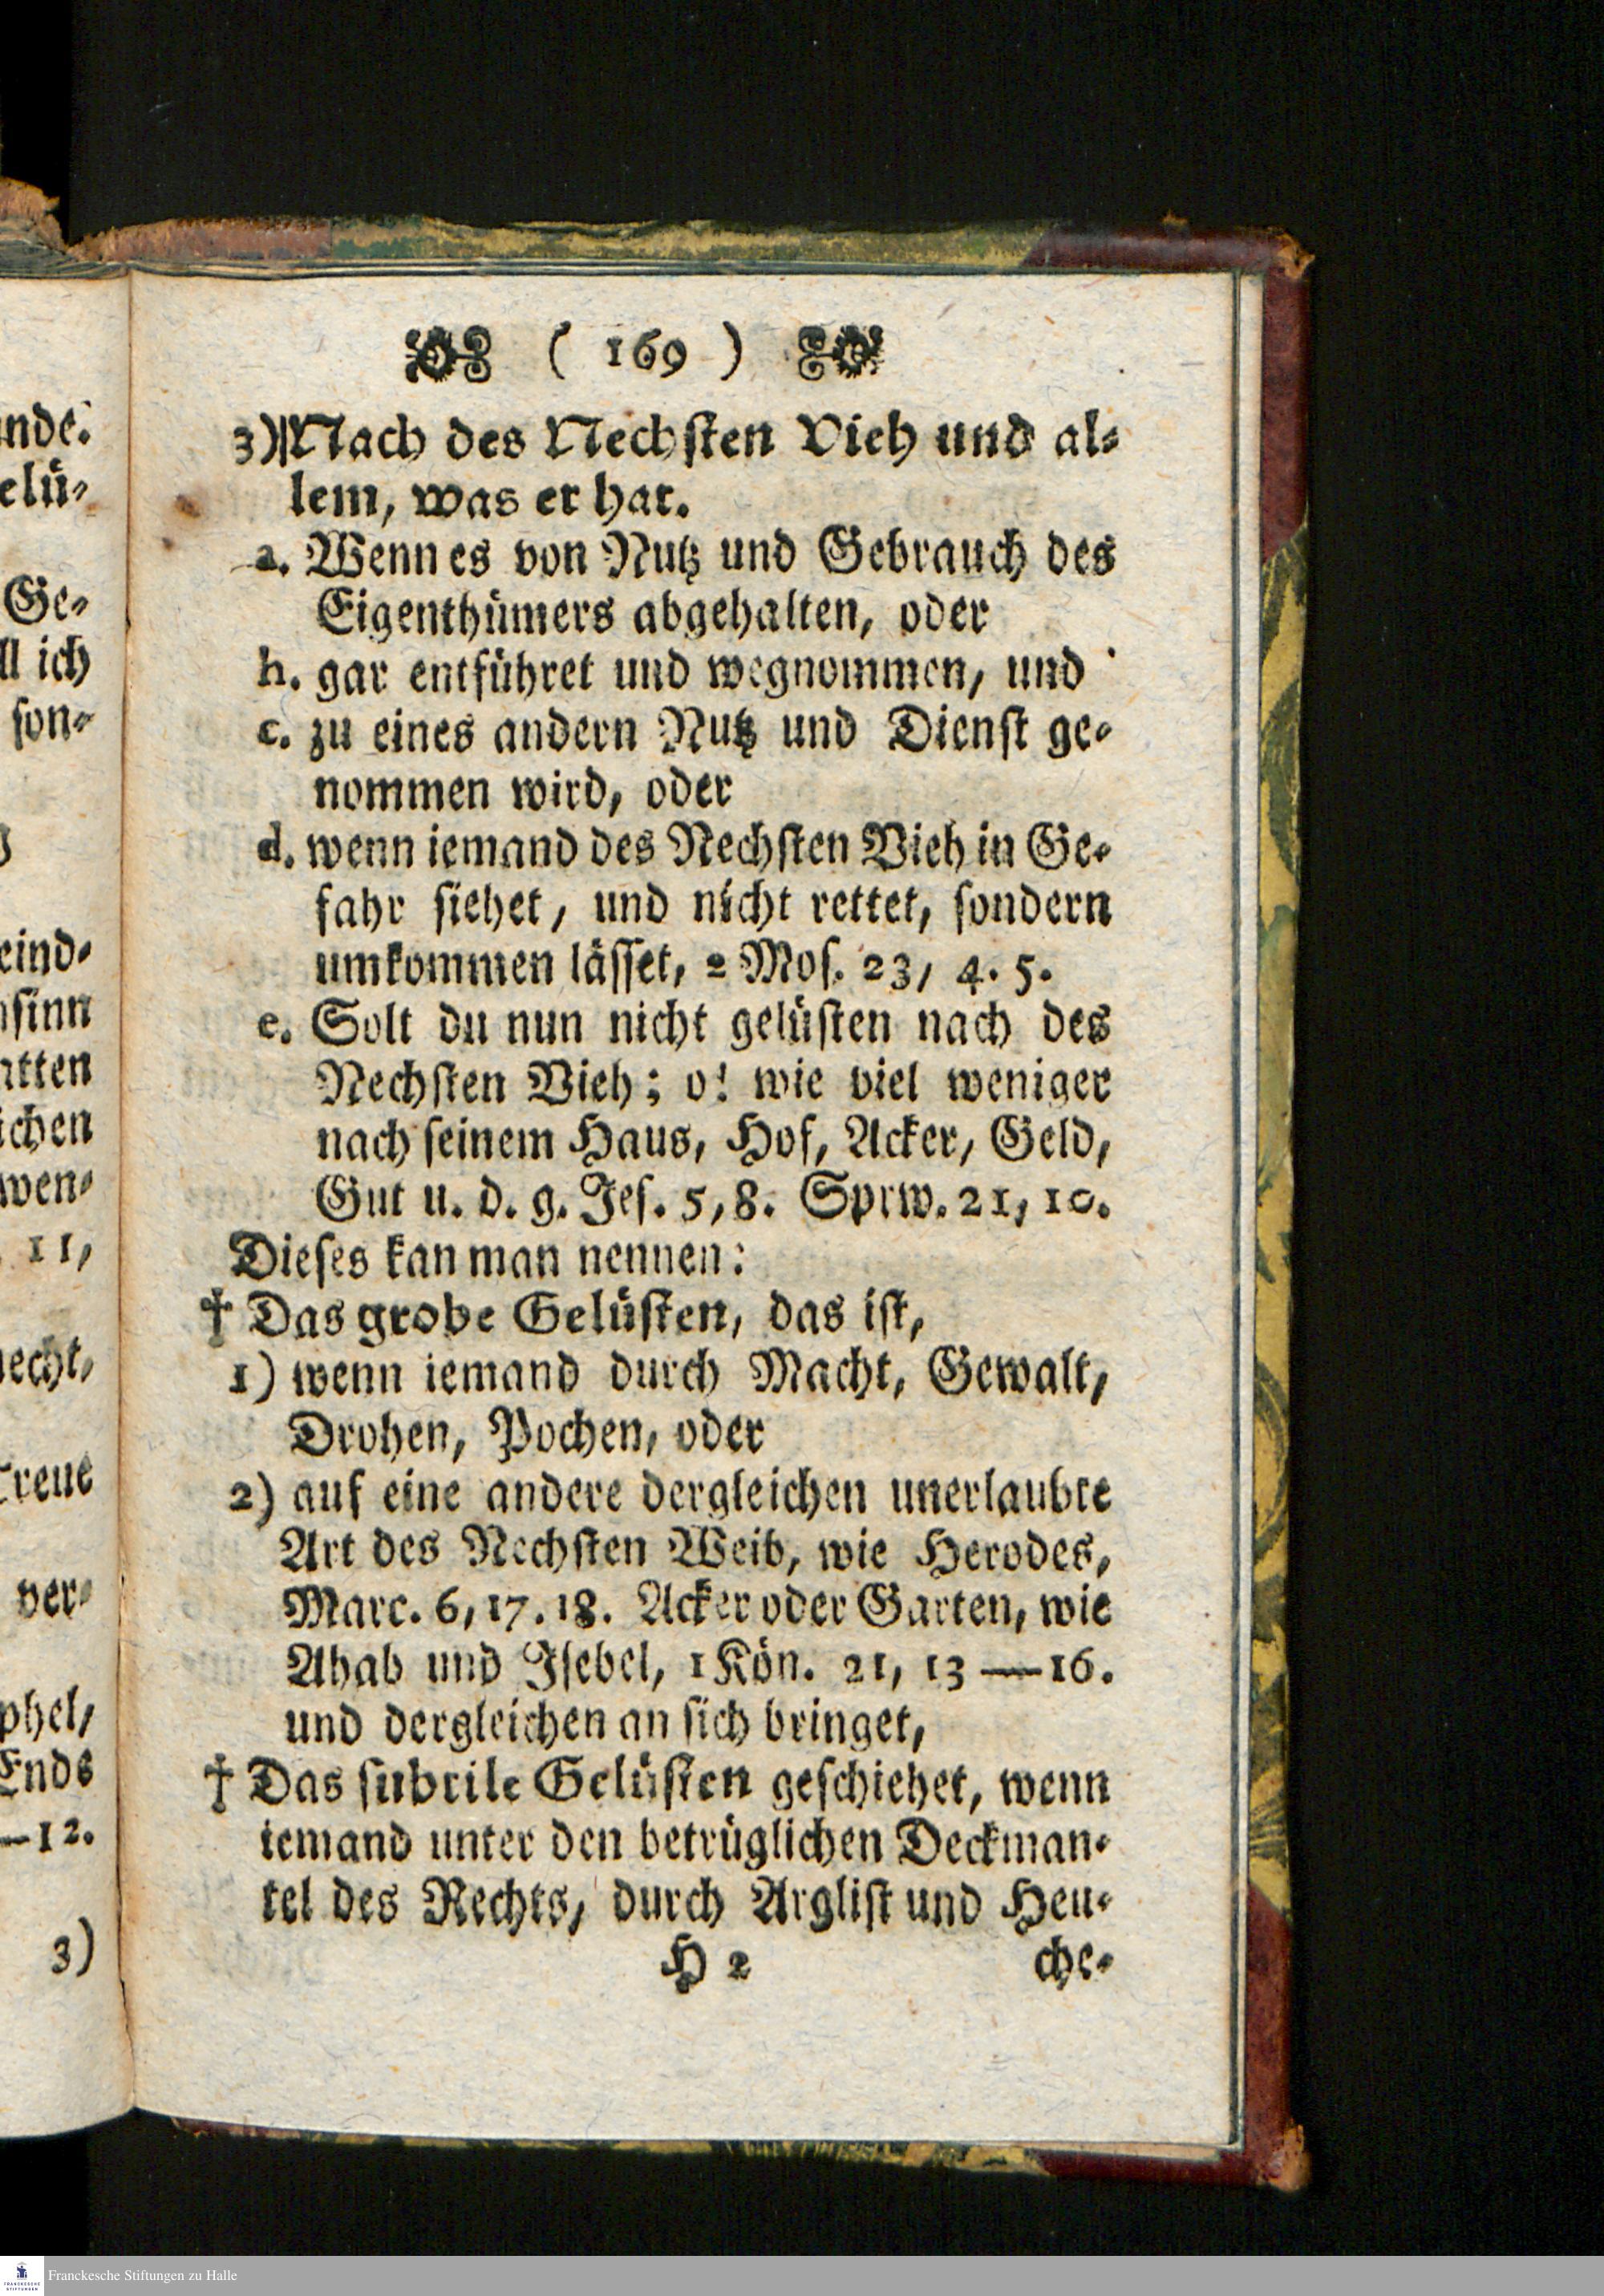 ( 169 )
3) Nach des Nechsten Vieh und al-
lem, was er hat.
a. Wenn es von Nutz und Gebrauch des
Eigenthümers abgehalten, oder
b. gar entführet und wegnommen, und
c. zu eines andern Nutz und Dienst ge-
nommen wird, oder
d. wenn iemand des Nechsten Vieh in Ge-
fahr siehet, und nicht rettet, sondern
umkommen lässet, 2 Mos. 23, 4. 5.
e. Solt du nun nicht gelüsten nach des
Nechsten Vieh; o! wie viel weniger
nach seinem Haus, Hof, Acker, Geld,
Gut u. d. g. Jes. 5, 8. Sprw. 21, 10.
Dieses kan man nennen:
† Das grobe Gelüsten, das ist,
1) wenn iemand durch Macht, Gewalt,
Drohen, Pochen, oder
2) auf eine andere dergleichen unerlaubte
Art des Nechsten Weib, wie Herodes,
Marc. 6, 17. 18. Acker oder Garten, wie
Ahab und Isebel, 1 Kön. 21, 13—16.
und dergleichen an sich bringet,
† Das subtile Gelüsten geschiehet, wenn
iemand unter den betrüglichen Deckman-
tel des Rechts, durch Arglist und Heu-
H 2 che-
nde.
elü-
Ge-
ll ich
son-
eind-
sinn
atten
ichen
wen-
11,
echt,
reue
ver-
phel,
Ends
—12.
3)
Franckesche Stiftungen zu Halle